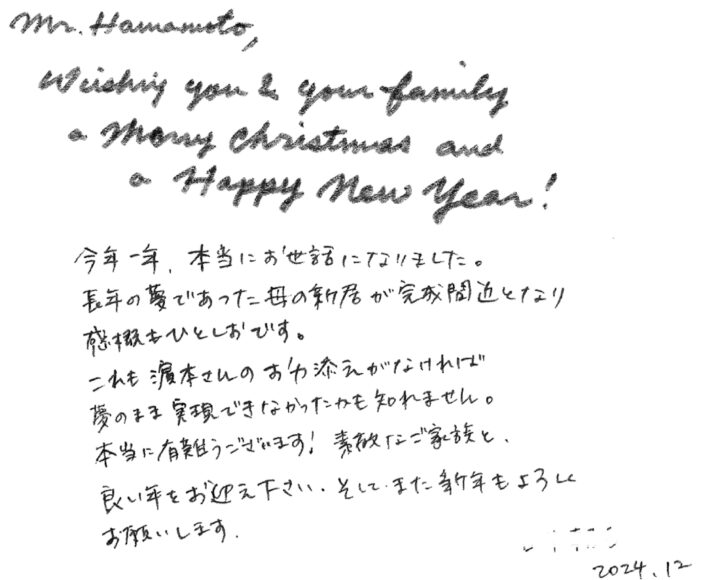 Mr. Hamamoto,
Wishing you & your family
a Merry Christmas and
a Happy New Year!
今年一年、本当にお世話になりました。
長年の夢であった母の新居が完成間近となり
感慨もひとしおです。
これも濵本さんのお力添えがなければ
夢のまま実現できなかったかも知れません。
本当に有難うございます! 素敵なご家族と、
良い年をお迎え下さい。そして、また新年もよろしく
お願いします。
2024.12